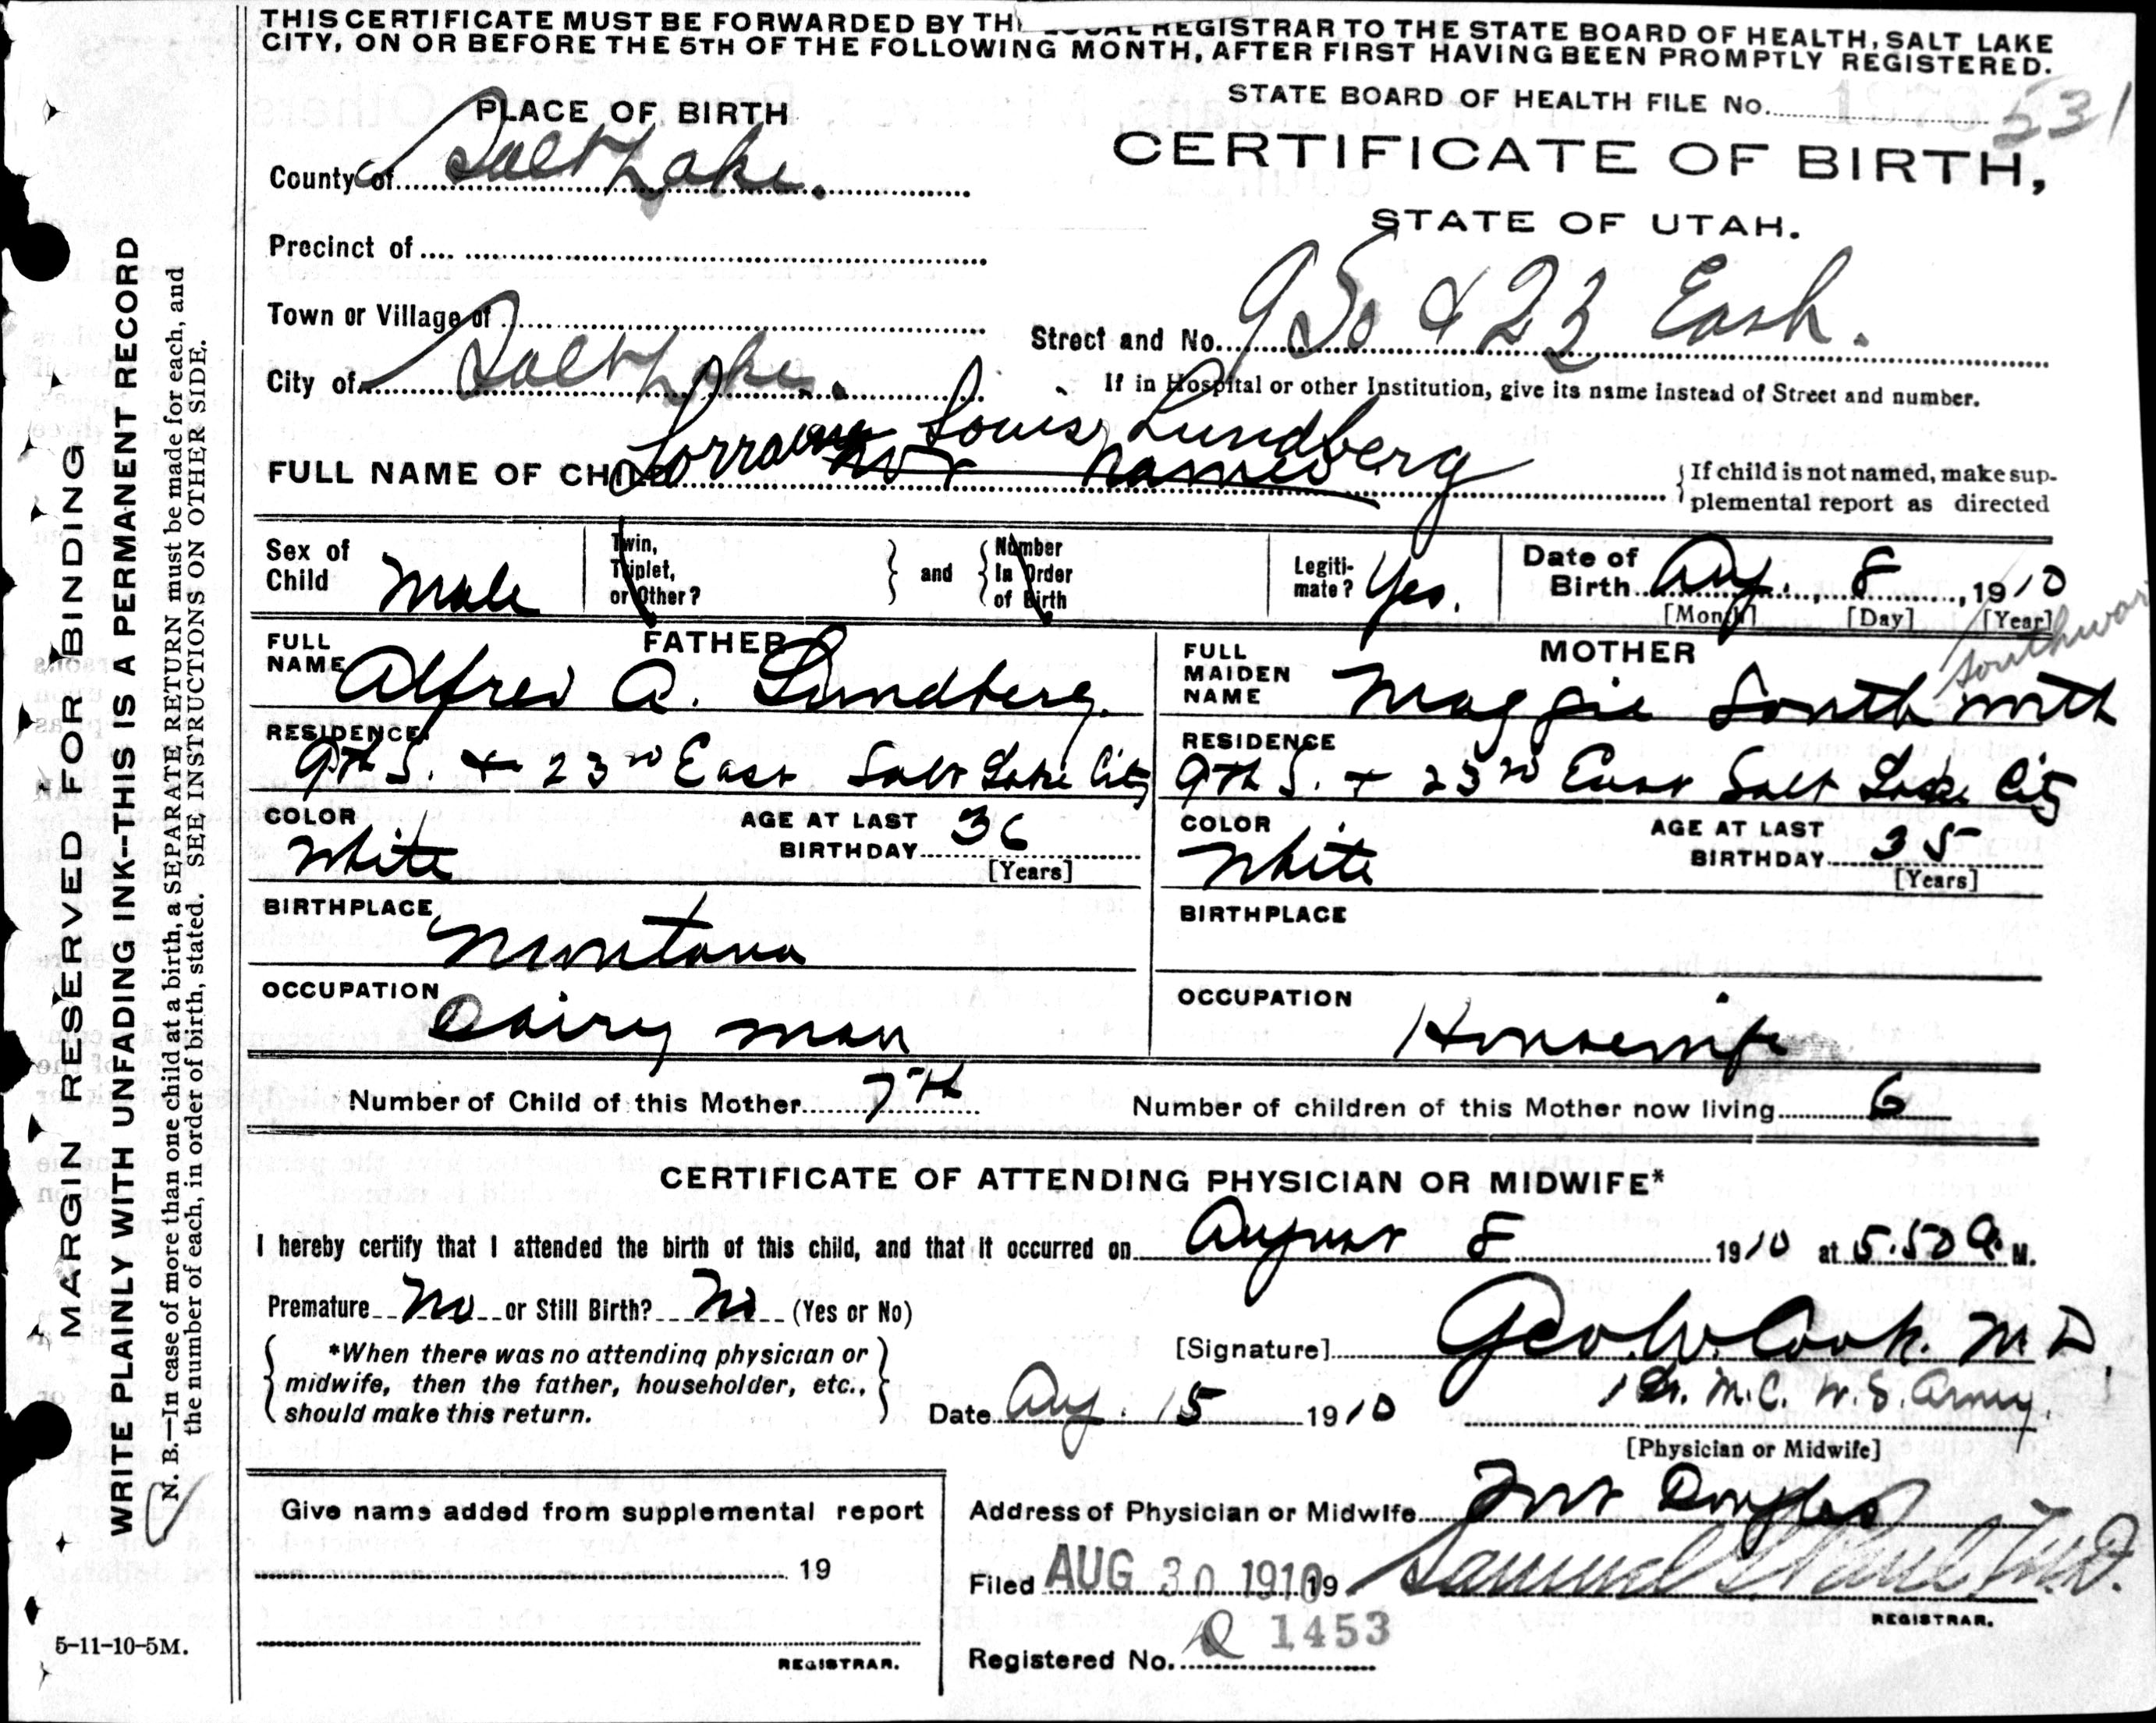 THIS CERTIFICATE MUST BE FORWARDED BY THE LOCAL REGISTRAR TO THE STATE BOARD OF HEALTH, SALT LAKE
CITY, ON OR BEFORE THE 5TH OF THE FOLLOWING MONTH, AFTER FIRST HAVING BEEN PROMPTLY REGISTERED.
STATE BOARD OF HEALTH FILE No. 531
PLACE OF BIRTH
CERTIFICATE OF BIRTH,
STATE OF UTAH.
County of Salt Lake.
Precinct of
Town or Village of
Street and No. 9 So & 23 East.
City of Salt Lake.
If in Hospital or other Institution, give its name instead of Street and number.
FULL NAME OF CHILD Lorraine Louis Lundberg
not named
If child is not named, make sup-
plemental report as directed
Sex of Child Male
Twin, Triplet, or Other?
and
Number In Order of Birth
Legiti-mate? Yes.
Date of Birth Aug. 8, 1910
[Month] [Day] [Year]
FATHER
FULL NAME Alfred A. Lundberg.
MOTHER
FULL MAIDEN NAME Maggie Southworth
RESIDENCE 9th S. + 23rd East Salt Lake City
RESIDENCE 9th S. + 23rd East Salt Lake City
COLOR White
AGE AT LAST BIRTHDAY 36 [Years]
COLOR White
AGE AT LAST BIRTHDAY 35 [Years]
BIRTHPLACE Montana
BIRTHPLACE
OCCUPATION Dairy man
OCCUPATION Housewife
Number of Child of this Mother 7th
Number of children of this Mother now living 6
CERTIFICATE OF ATTENDING PHYSICIAN OR MIDWIFE*
I hereby certify that I attended the birth of this child, and that it occurred on August 8 1910 at 5.50 A. M.
Premature No or Still Birth? No (Yes or No)
*When there was no attending physician or
midwife, then the father, householder, etc.,
should make this return.
[Signature] Geo. W. Cook. M D.
Date Aug. 15 1910
M.C. U.S. Army.
[Physician or Midwife]
Give name added from supplemental report
19
REGISTRAR.
Address of Physician or Midwife Fort Douglas
Filed AUG 30 1910 19 Samuel M.D.
REGISTRAR.
Registered No. 1453
MARGIN RESERVED FOR BINDING
WRITE PLAINLY WITH UNFADING INK--THIS IS A PERMANENT RECORD
N. B.—In case of more than one child at a birth, a SEPARATE RETURN must be made for each, and
the number of each, in order of birth, stated. SEE INSTRUCTIONS ON OTHER SIDE.
5-11-10-5M.